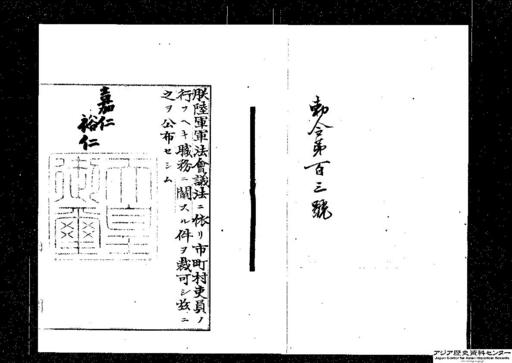 勅令第百三號
朕陸軍軍法會議法ニ依リ市町村吏員ノ
行フヘキ職務ニ關スル件ヲ裁可シ茲ニ
之ヲ公布セシム
嘉仁
裕仁
天皇
御璽
アジア歴史資料センター
Japan Center for Asian Historical Records